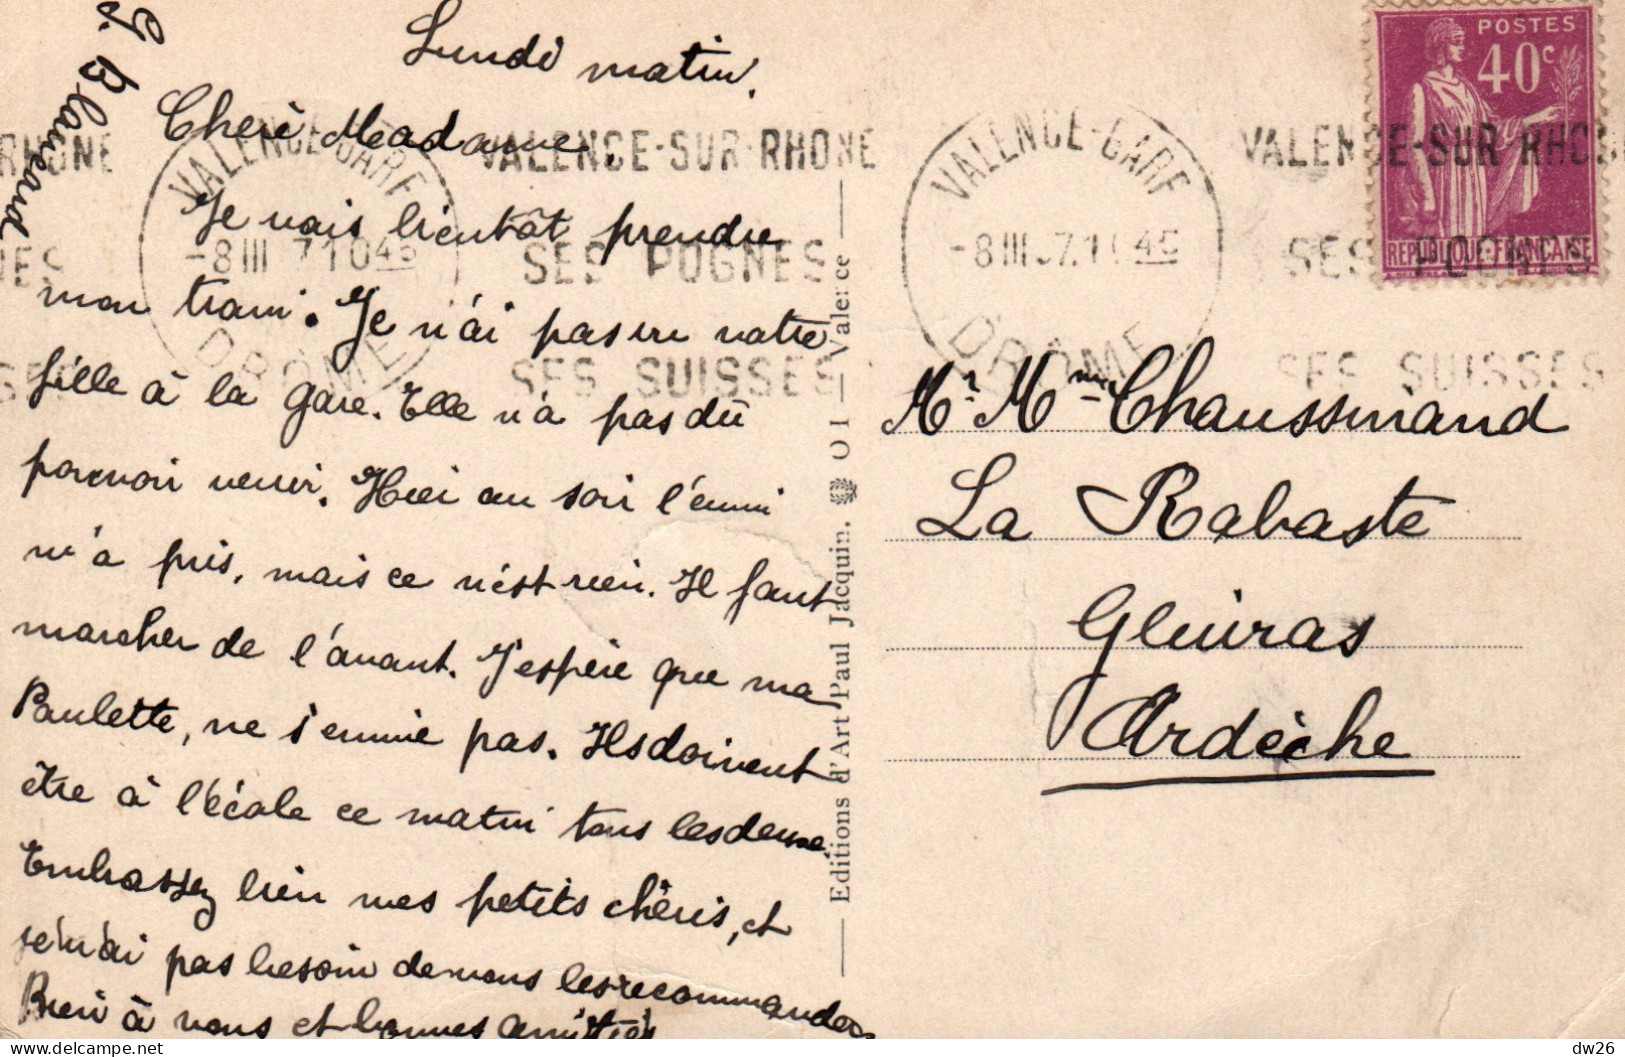 Lundi matin.
Chère Madame.
Je vais bientôt prendre
mon train. Je n'ai pas vu votre
fille à la gare. Elle n'a pas dû
pouvoir venir. Hier au soir l'ennui
m'a pris, mais ce n'est rien. Il faut
marcher de l'avant. J'espère que ma
Paulette, ne s'ennuie pas. Ils doivent
être à l'école ce matin tous les deux.
Embrassez bien mes petits chéris, et
je n'ai pas besoin de vous les recommander
Bien à vous et bonnes amitiés
G. Blaveaud
Editions d'Art Paul Jacquin. O I Valence
VALENCE-GARE
-8 III 37.1045
DROME
VALENCE-SUR-RHONE
SES POGNES
SES SUISSES
VALENCE-GARE
-8 III 37.1045
DROME
VALENCE-SUR RHONE
SES POGNES
SES SUISSES
POSTES
40c
REPUBLIQUE FRANÇAISE
Mr. Mme Chaussinand
La Rabaste
Gluiras
Ardèche
dw26